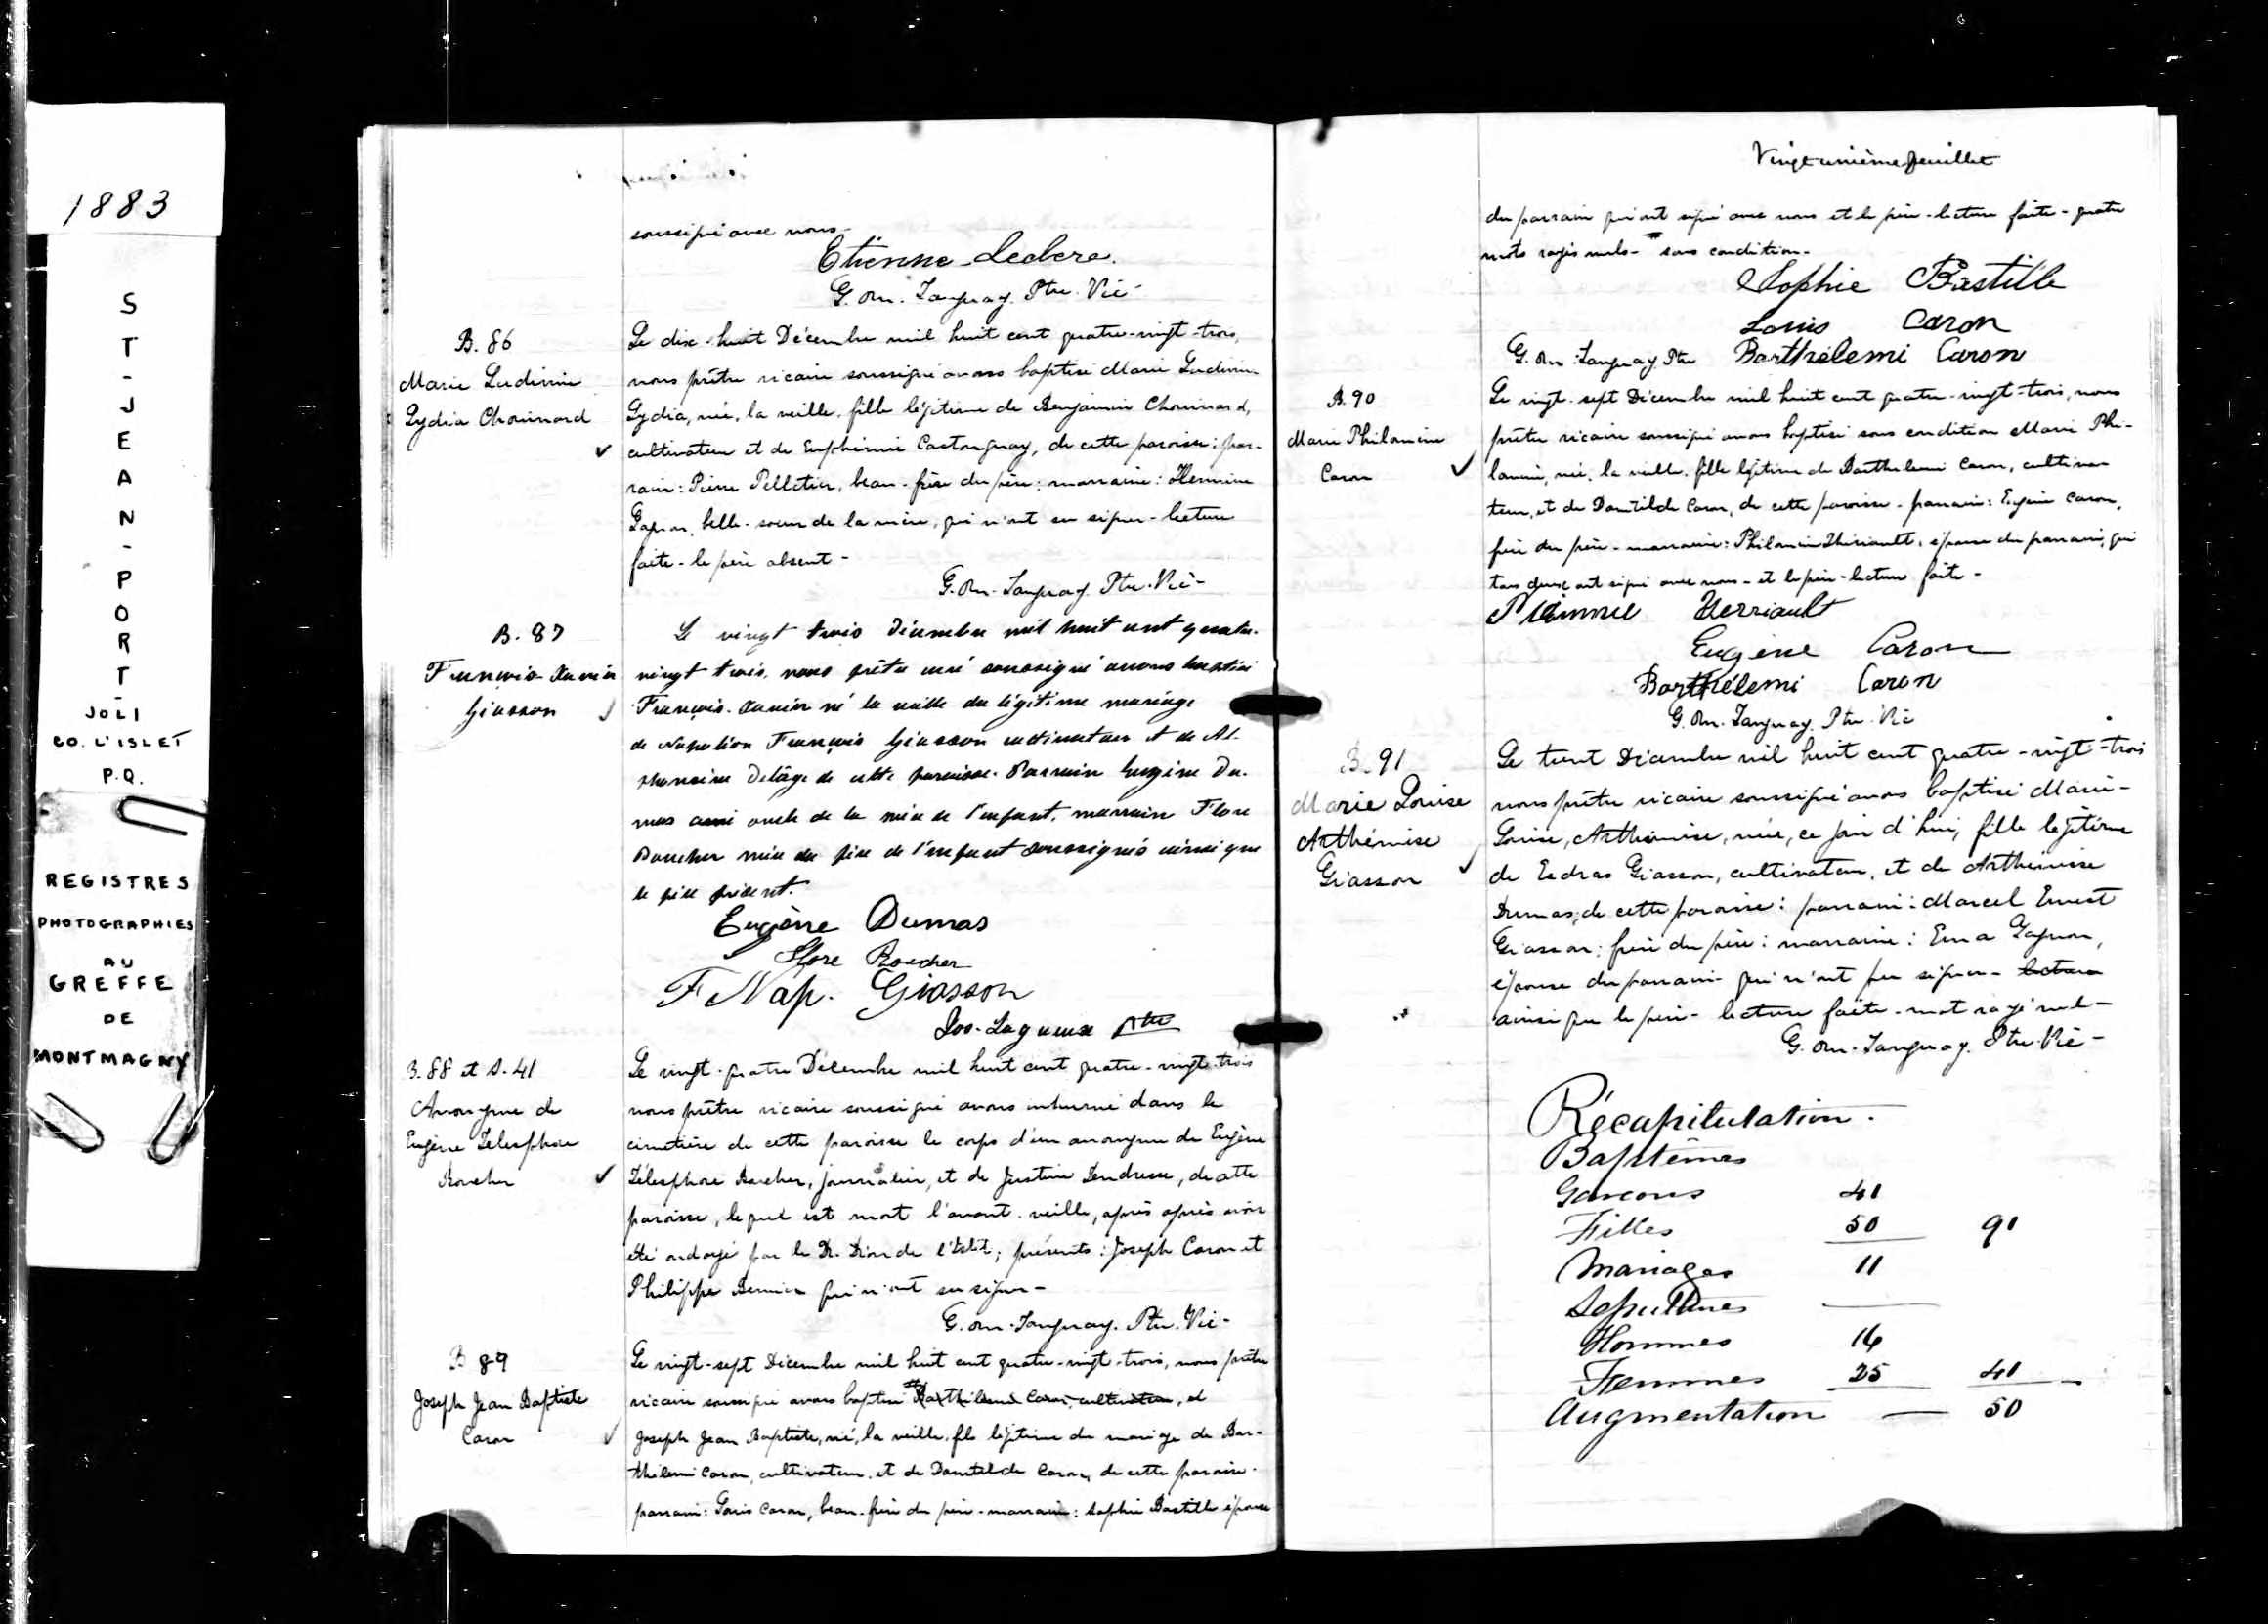 1883
ST-JEAN-PORT-
JOLI
CO. L'ISLET
P.Q.
REGISTRES
PHOTOGRAPHIES
AU
GREFFE
DE
MONTMAGNY
soussigné avec nous-
Etienne Leclerc.
G. Tanguay. Ptre. Vic-
B. 86
Marie Ludivine
Lydia Chouinard
Le dix-huit Décembre mil huit cent quatre-vingt-trois,
nous prêtre vicaire soussigné avons baptisé Marie Ludivine
Lydia, née, la veille, fille légitime de Benjamin Chouinard,
cultivateur et de Euphémie Castonguay, de cette paroisse: par-
rain: Pierre Pelletier, beau-frère du père: marraine: Hermine
Gagnon, belle-soeur de la mère, qui n'ont su signer-lecture
faite-le père absent-
G. Tanguay Ptre. Vic-
B. 87
François-Xavier
Giasson
Le vingt trois Décembre mil huit cent quatre-
vingt trois, nous prêtre curé soussigné avons baptisé
François-Xavier né la veille du légitime mariage
de Napoléon François Giasson cultivateur et de Al-
phonsine Delâge de cette paroisse. Parrain Eugène Du-
mas oncle de la mère de l'enfant, marraine Flore
Boucher mère du père de l'enfant soussignés ainsi que
le père présent.
Eugène Dumas
Flore Boucher
F Nap. Giasson
Jos. Lagueux Ptre
B. 88 et S. 41
Anonyme de
Eugène Télesphore
Boucher
Le vingt-quatre Décembre mil huit cent quatre-vingt-trois
nous prêtre vicaire soussigné avons inhumé dans le
cimetière de cette paroisse le corps d'un anonyme de Eugène
Télesphore Boucher, journalier, et de Justine Lendresse, de cette
paroisse, lequel est mort l'avant-veille, après après avoir
été ondoyé par le Dr. Dion de l'Islet; présents: Joseph Caron et
Philippe Bernier qui n'ont su signer-
G. Tanguay. Ptre. Vic-
B 89
Joseph Jean Baptiste
Caron
Le vingt-sept Décembre mil huit cent quatre-vingt-trois, nous prêtre
vicaire soussigné avons baptisé Barthélemi Caron, cultivateur, et
Joseph Jean Baptiste, né, la veille, fils légitime du mariage de Bar-
thélemi Caron, cultivateur, et de Domtilde Caron, de cette paroisse-
parrain: Louis Caron, beau-frère du père-marraine: Sophie Bastille épouse
Vingt unième feuillet
du parrain qui ont signé avec nous et le père-lecture faite-quatre
mots rayés nuls- sous condition-
Sophie Bastille
Louis Caron
G. Tanguay Ptre Barthélemi Caron
B. 90
Marie Philomène
Caron
Le vingt-sept Décembre mil huit cent quatre-vingt-trois, nous
prêtre vicaire soussigné avons baptisé sous condition Marie Phi-
lomène, née, la veille, fille légitime de Barthélemi Caron, cultiva-
teur, et de Domtilde Caron, de cette paroisse-parrain: Eugène Caron,
frère du père-marraine: Philomène Thériault, épouse du parrain, qui
tous deux ont signé avec nous-et le père-lecture faite-
Terriault
Eugène Caron
Barthélemi Caron
G. Tanguay. Ptre. Vic
B. 91
Marie Louise
Arthémise
Giasson
Le trente Décembre mil huit cent quatre-vingt-trois
nous prêtre vicaire soussigné avons baptisé Marie-
Louise, Arthémise, née, ce jour d'hui, fille légitime
de Esdras Giasson, cultivateur, et de Arthémise
Dumas, de cette paroisse: parrain: Marcel Ernest
Giasson: frère du père: marraine: Ema Gagnon,
épouse du parrain-qui n'ont pu signer- lecture
ainsi que le père-lecture faite-mot rayé nul-
G. Tanguay. Ptre. Vic-
Récapitulation.
Baptêmes
Garcons 41
Filles 50 91
Mariages 11
Sépultures
Hommes 16
Femmes 25 41
Augmentation — 50